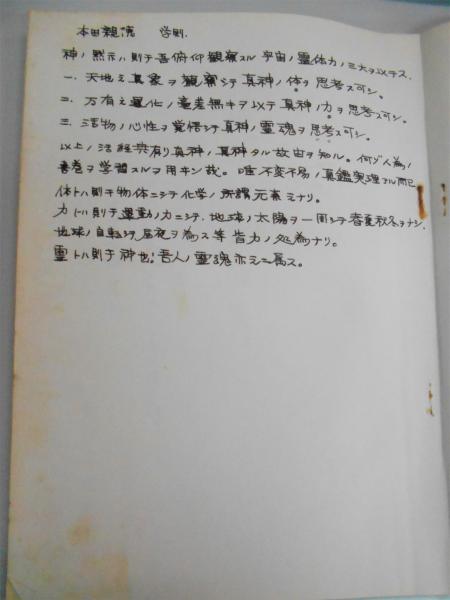 本田親徳　学則.
神ノ黙示ハ則チ吾俯仰観察スル宇宙ノ霊体力ノ三大ヲ以テス.
一. 天地之真象ヲ観察シテ真神ノ体ヲ思考ス可シ。
二. 万有之運化ノ毫差無キヲ以テ真神ノ力ヲ思考ス可シ。
三. 活物ノ心性ヲ覚悟シテ真神ノ霊魂ヲ思考ス可シ。
以上ノ活経典有リ真神ノ真神タル故由ヲ知ル。何ゾ人為ノ
書巻ヲ学習スルヲ用キン哉。唯不変不易ノ真鑑実理ヲル而已
体トハ則チ物体ニシテ化学ノ所謂元素ミナリ。
力トハ則チ運動ノ力ニシテ、地球ノ太陽ヲ一周シテ春夏秋冬ヲナシ.
地球ノ自転シテ昼夜ヲ為ス等皆力ノ処為ナリ。
霊トハ則チ神也。吾人ノ霊魂亦之ニ属ス。